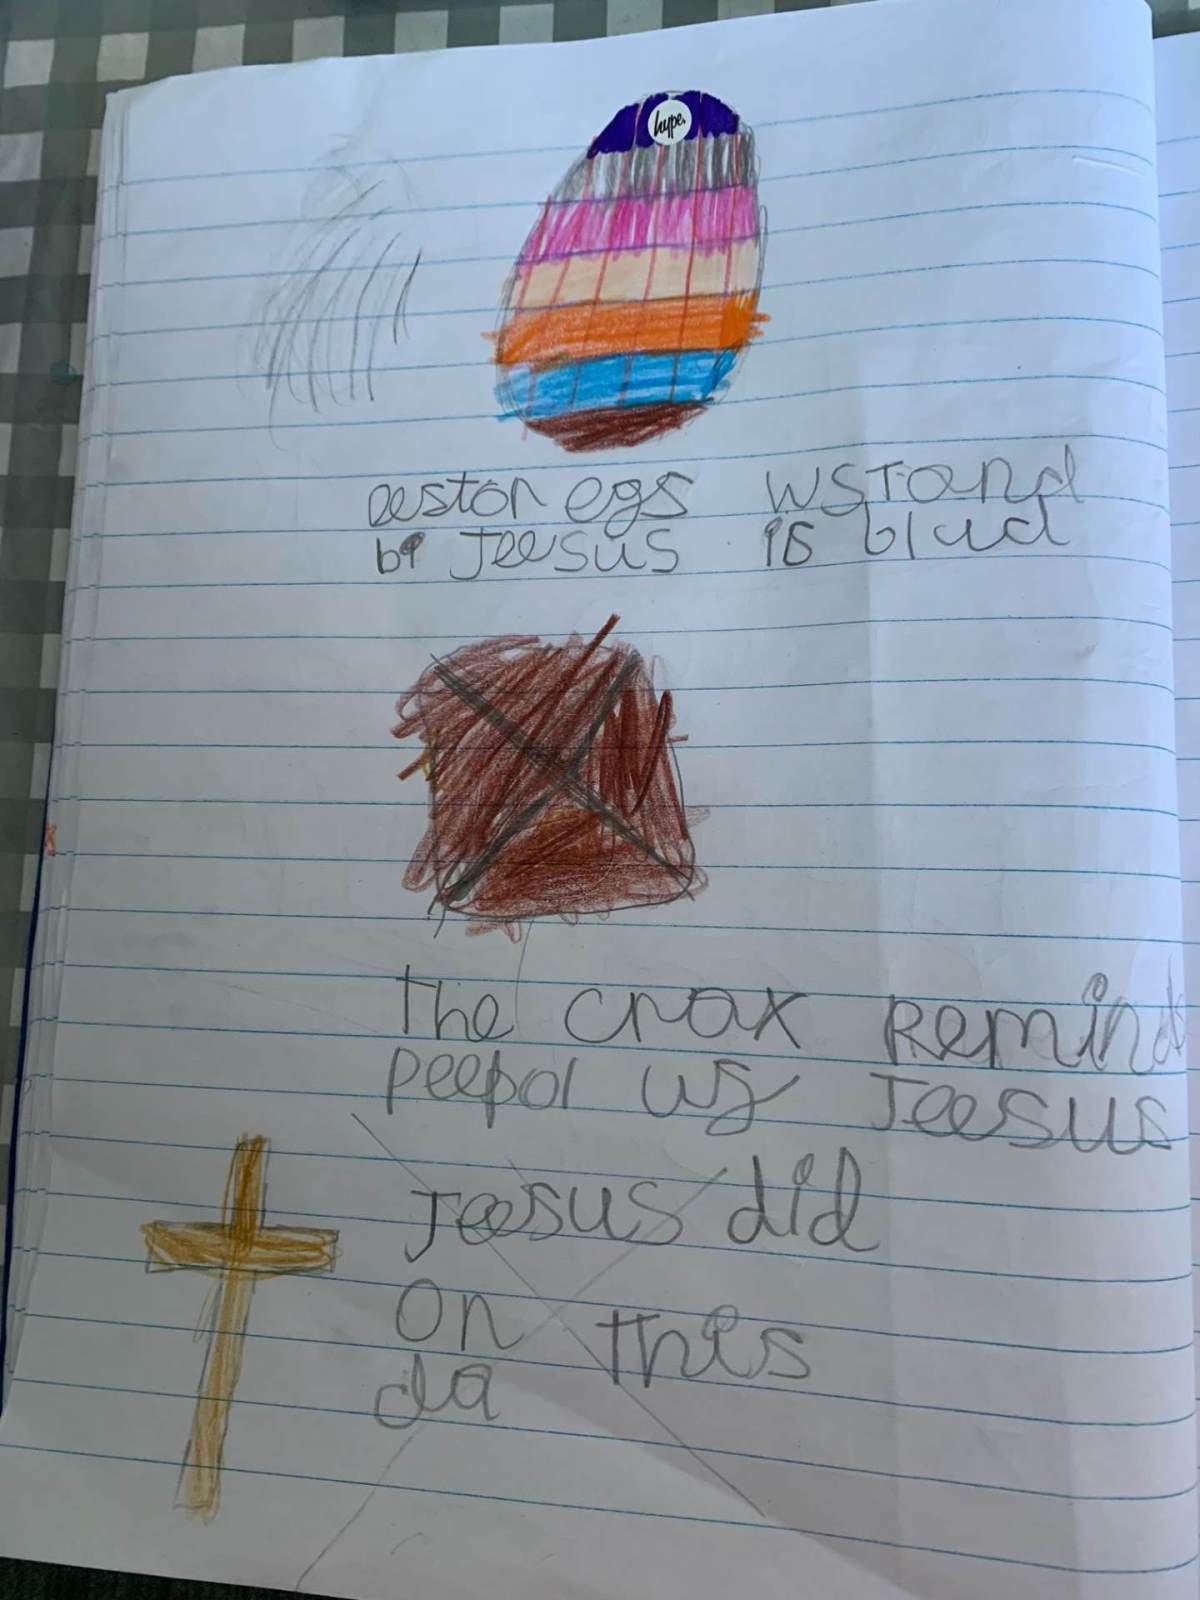 hype.
eestor egs wstand
bi Jeesus is blud
the crox Reminds
peepol us Jeesus
Jeesus did
on this
da